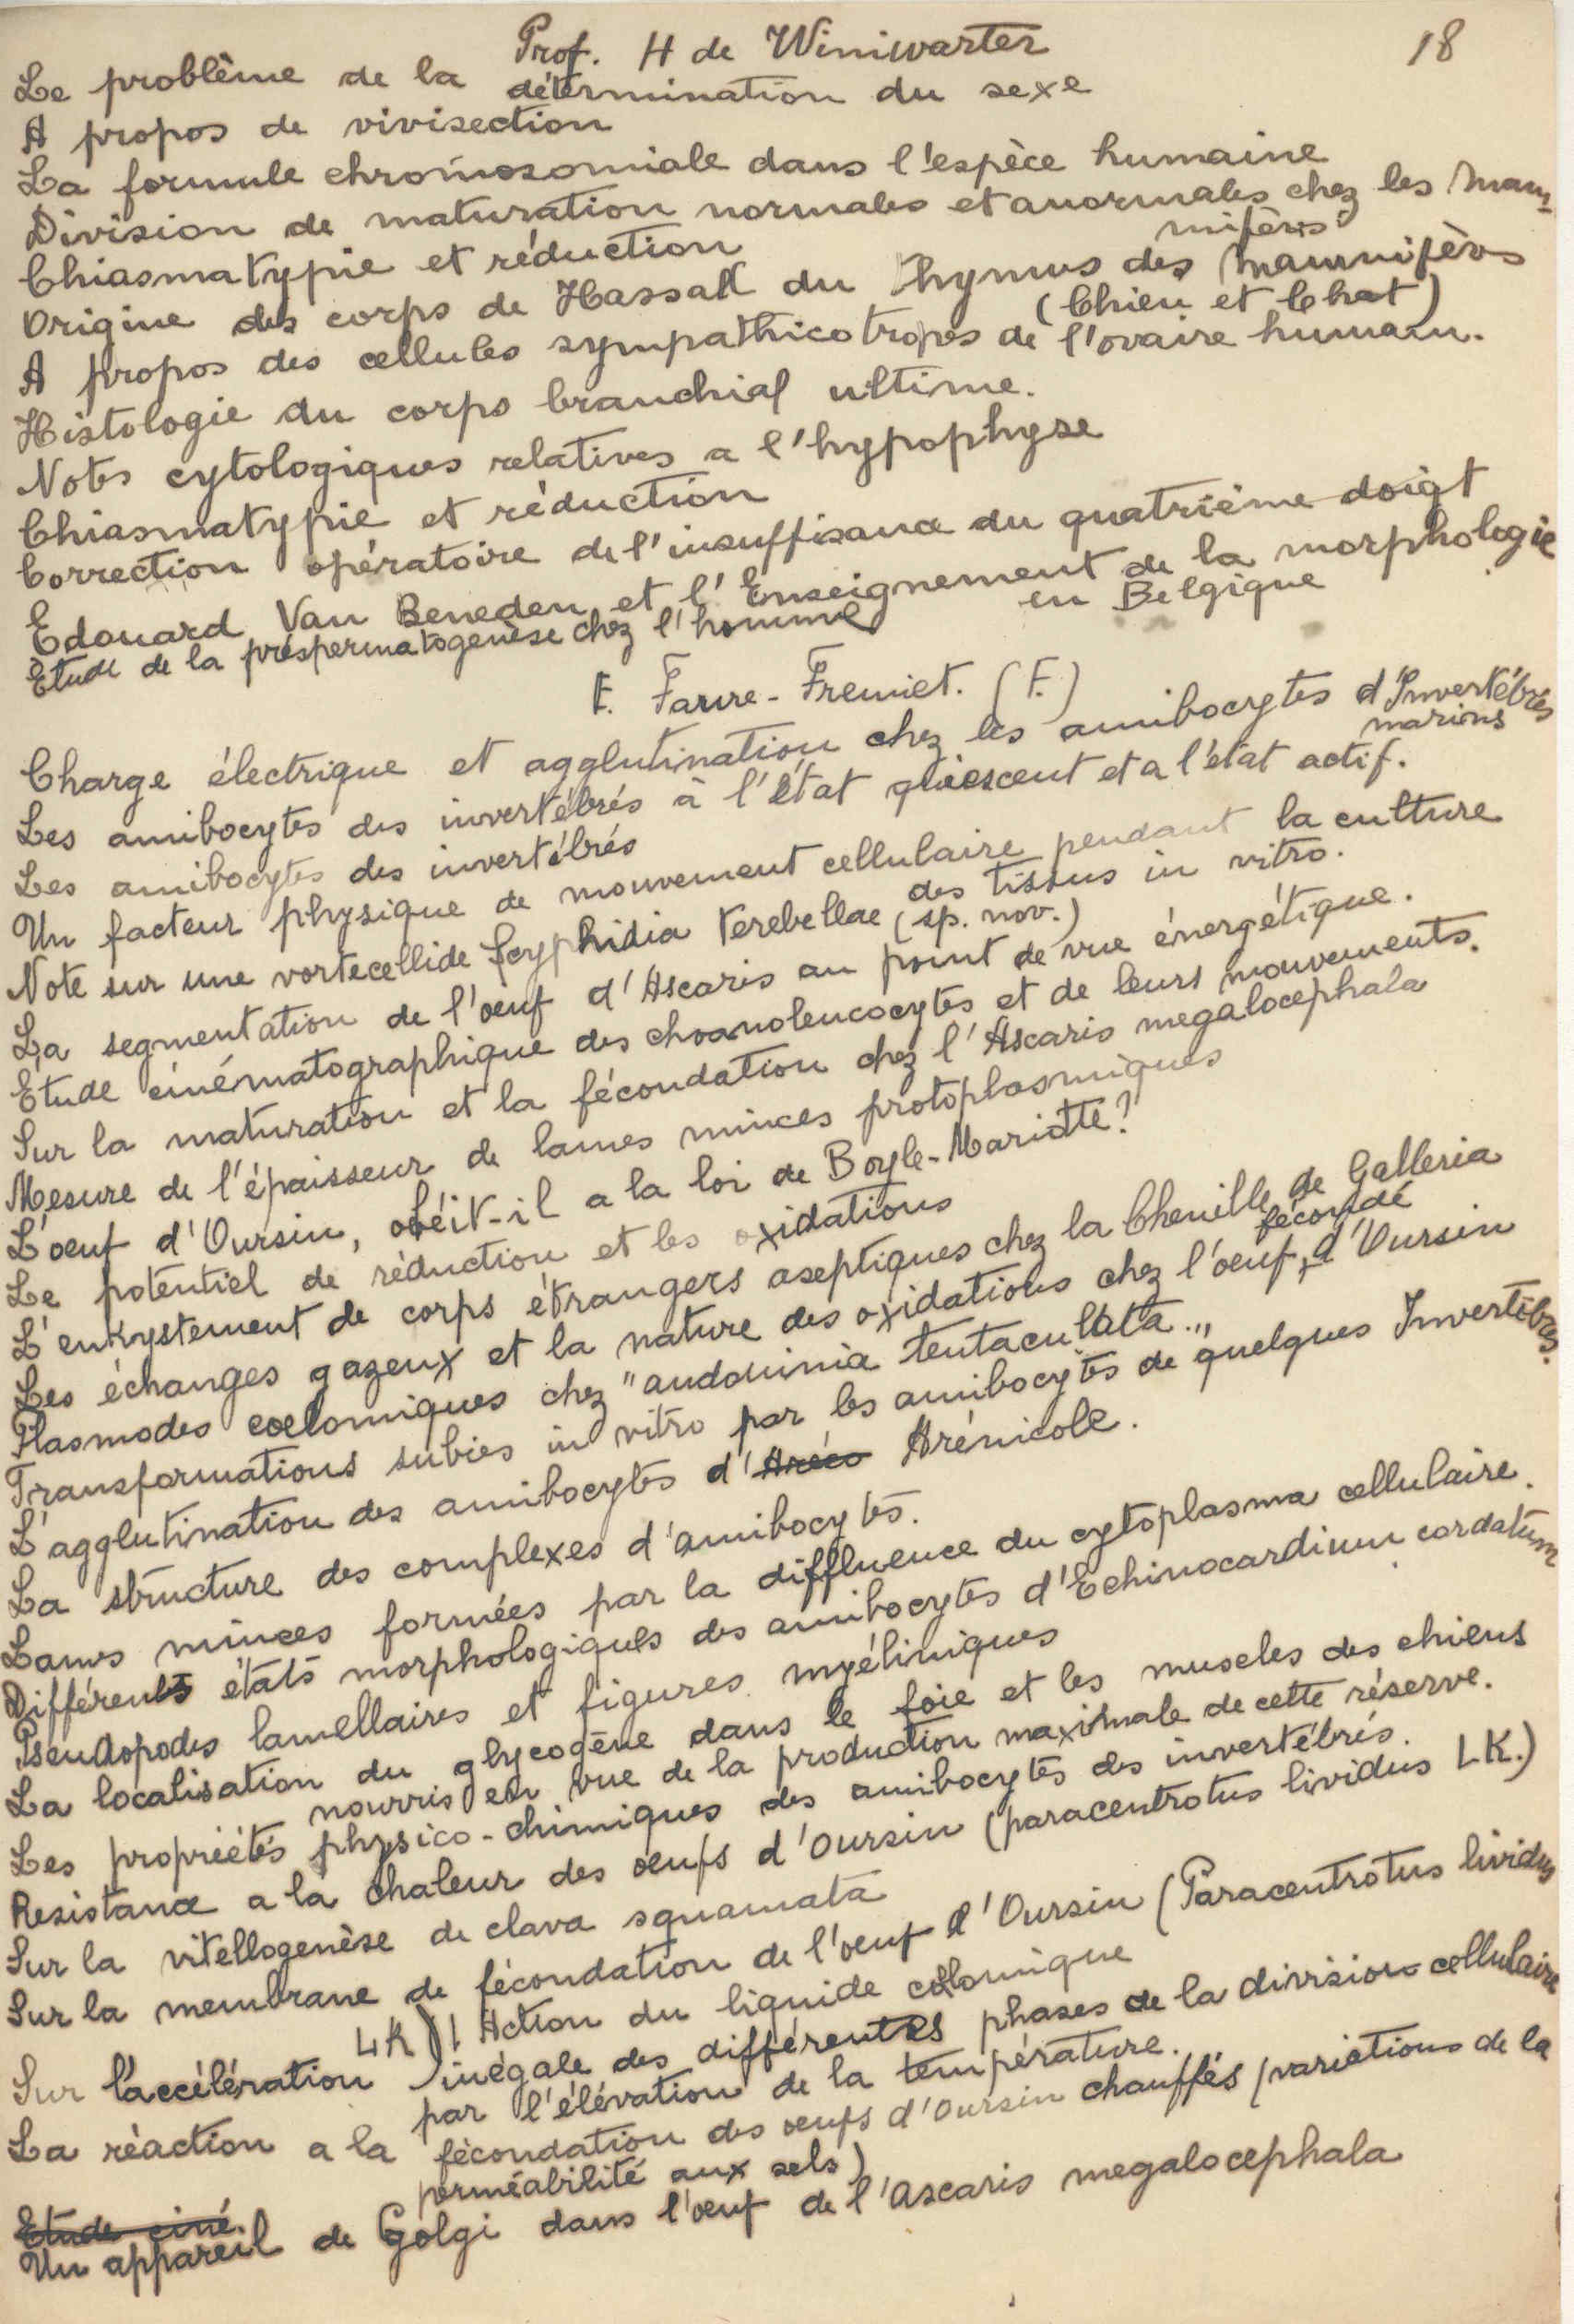 Prof. H de Winiwarter
18
Le problème de la détermination du sexe
A propos de vivisection
La formule chromosomiale dans l'espèce humaine
Division de maturation normales et anormales chez les Mam-
mifères
Chiasmatypie et réduction
Origine des corps de Hassall du Thymus des Mammifères
(Chien et Chat)
A propos des cellules sympathicotropes de l'ovaire humain.
Histologie du corps branchial ultime.
Notes cytologiques relatives a l'hypophyse
Chiasmatypie et réduction
Correction opératoire de l'insuffisance du quatrième doigt
Edouard Van Beneden et l'Enseignement de la morphologie
en Belgique
Etude de la préspermatogenèse chez l'homme
E. Faure-Fremiet. (F.)
Charge électrique et agglutination chez les amibocytes d'Invertébrés
marins
Les amibocytes des invertébrés à l'état quiescent et a l'état actif.
Les amibocytes des invertébrés
Un facteur physique de mouvement cellulaire pendant la culture
des tissus in vitro.
Note sur une vortecellide Scyphidia Terebellae (sp. nov.)
La segmentation de l'oeuf d'Ascaris au point de vue énergétique.
Etude cinématographique des choanoleucocytes et de leurs mouvements.
Sur la maturation et la fécondation chez l'Ascaris megalocephala
Mesure de l'épaisseur de lames minces protoplasmiques
L'oeuf d'Oursin, obéit-il a la loi de Boyle-Mariotte?
Le potentiel de réduction et les oxidations
L'enkystement de corps étrangers aseptiques chez la Chenille de Galleria
fécondé
Les échanges gazeux et la nature des oxidations chez l'oeuf d'Oursin
Plasmodes coelomiques chez "audouinia tentaculata"
Transformations subies in vitro par les amibocytes de quelques Invertébrés.
L'agglutination des amibocytes d'Aréco Arénicole.
La structure des complexes d'amibocytes.
Lames minces formées par la diffluence du cytoplasma cellulaire.
Différents états morphologiques des amibocytes d'Echinocardium cordatum
Pseudopodes lamellaires et figures myéliniques
La localisation du glycogène dans le foie et les muscles des chiens
nourris en vue de la production maximale de cette réserve.
Les propriétés physico-chimiques des amibocytes des invertébrés.
Resistance a la chaleur des oeufs d'Oursin (paracentrotus lividus LK.)
Sur la vitellogenèse de clava squamata
Sur la membrane de fécondation de l'oeuf d'Oursin (Paracentrotus lividus
LK)! Action du liquide coelomique
Sur l'accélération inégale des différentes phases de la division cellulaire
par l'élévation de la température.
La réaction a la fécondation des oeufs d'Oursin chauffés (variations de la
perméabilité aux sels)
Etude ciné.
Un appareil de Golgi dans l'oeuf de l'Ascaris megalocephala